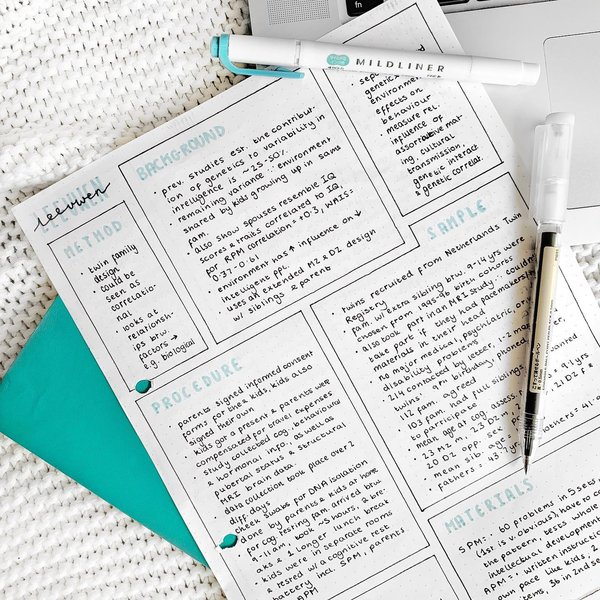 MILDLINER
LEEUWEN
leeuwen
BACKGROUND
• prev. studies est. the contribut-
ion of genetics to variability in
intelligence is ~ 25-50%.
remaining variance : environment
shared by kids growing up in same
fam.
• also show spouses resemble IQ
scores & traits correlated to IQ
for RPM correlation = +0.3, WAIS =
0.37 - 0.61
• environment has ↑ influence on ↓
intelligent ppl.
• uses an extended MZ & DZ design
w/ siblings & parents
genetic
environment
effects on
behaviour
• measure rel.
influence of
assortative mat
ing, cultural
transmission,
genetic interact
& genetic correlat.
METHOD
• twin family
design
• could be
seen as
correlatio
nal
• looks at
relationsh-
ips btw.
factors →
e.g. biological
SAMPLE
• twins recruited from Netherlands Twin
Registry
• fam. w/ extra sibling btw. 9-14 yrs were
selected from 1995-96 birth cohorts
also took part in MRI study
take part if they had pacemakers
materials in their head
• no major medical, psychiatric, or
disability problems
• 214 contacted by letter, 1-2
twins' 9th birthday, phoned
• 112 fam. agreed
• 103 fam. had full siblings,
to participate
• mean age at cog. assess.
• 23 MZ m, 23 DZ m,
20 DZ opp.
21 DZ f
• mean sib. age
• fathers = 43.
mothers = 41
PROCEDURE
• parents signed informed consent
forms for the kids, kids also
signed their own
• kids got a present & parents were
compensated for travel expenses
• study collected cog., behavioural
& hormonal info. as well as
pubertal status & structural
MRI brain data
• data collection took place over 2
diff days
• cheek swabs for DNA isolation
done by parents & kids at home
• for cog. testing fam. arrived btw.
9-11 am, took ~5 hours, 2 bre-
aks & 1 longer lunch break
• kids were in separate rooms
& tested w/ a cognitive test
battery incl. SPM, parents
APM
MATERIALS
• SPM = 60 problems in 5 sets,
(1st is v. obvious), have to
the pattern, tests whole
intellectual development
• APM = ↑, written instruction
own pace like kids, 2
items, 36 in 2nd se
fn